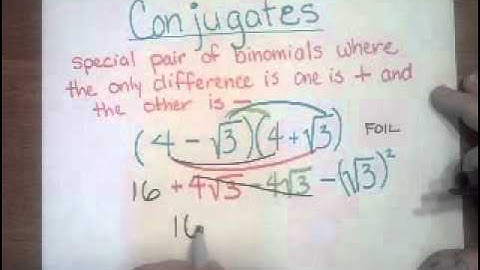 Conjugates
special pair of binomials where
the only difference is one is + and
the other is −
(4 − √3)(4 + √3) FOIL
16 + 4√3 − 4√3 − (√3)²
16